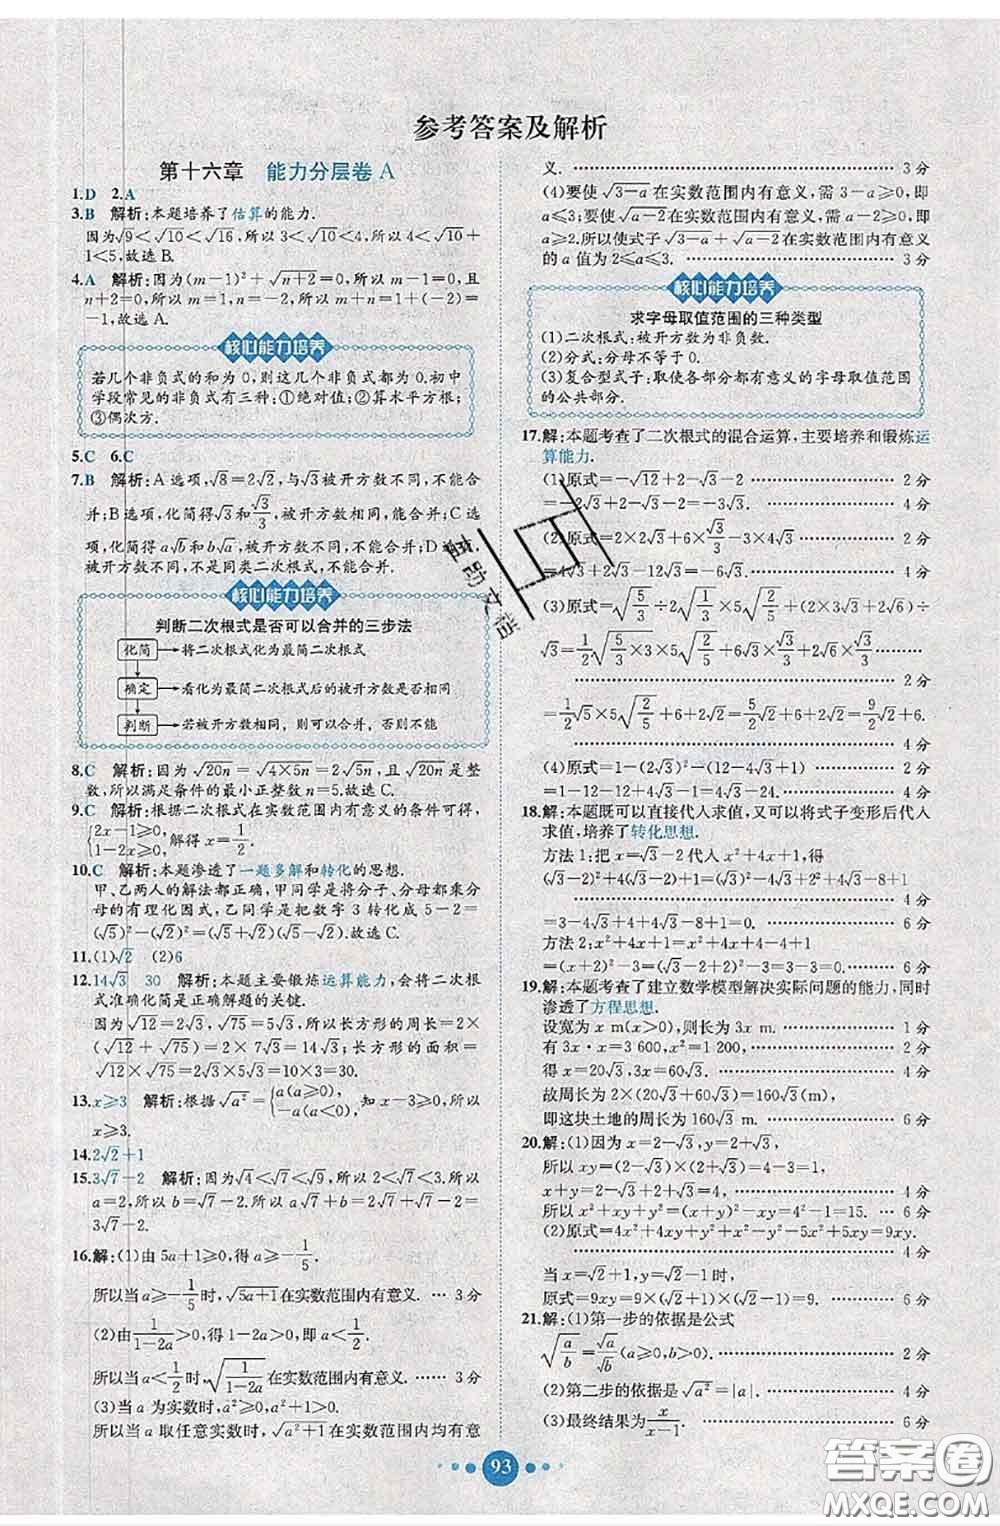 参考答案及解析
第十六章 能力分层卷 A
1.D 2.A
3.B 解析:本题培养了估算的能力.
因为√9<√10<√16,所以 3<√10<4,所以 4<√10+
1<5,故选 B.
4.A 解析:因为(m-1)²+√(n+2)=0,所以 m-1=0,且
n+2=0,所以 m=1,n=-2,所以 m+n=1+(-2)=
-1,故选 A.
核心能力培养
若几个非负式的和为 0,则这几个非负式都为 0.初中
学段常见的非负式有三种:①绝对值;②算术平方根;
③偶次方.
5.C 6.C
7.B 解析:A 选项,√8=2√2,与√3被开方数不同,不能合
并;B 选项,化简得√3和√3/3,被开方数相同,能合并;C 选
项,化简得a√b和b√a,被开方数不同,不能合并;D 选项,
被开方数不同,不是同类二次根式,不能合并.
核心能力培养
判断二次根式是否可以合并的三步法
化简→将二次根式化为最简二次根式
确定→看化为最简二次根式后的被开方数是否相同
判断→若被开方数相同,则可以合并,否则不能
8.C 解析:因为√(20n)=√(4×5n)=2√(5n),且√(20n)是整
数,所以满足条件的最小正整数 n=5.故选 C.
9.C 解析:根据二次根式在实数范围内有意义的条件可得,
{2x-1≥0, 1-2x≥0,解得 x=1/2.
10.C 解析:本题渗透了一题多解和转化的思想.
甲、乙两人的解法都正确,甲同学是将分子、分母都乘分
母的有理化因式,乙同学是把数字 3 转化成 5-2=
(√5)²-(√2)²=(√5+√2)(√5-√2).故选 C.
11.(1)√2 (2)6
12.14√3 30 解析:本题主要锻炼运算能力,会将二次根
式准确化简是正确解题的关键.
因为√12=2√3,√75=5√3,所以长方形的周长=2×
(√12+√75)=2×(2√3+5√3)=14√3;长方形的面积=
√12×√75=2√3×5√3=10×3=30.
13.x≥3 解析:根据√a²={a(a≥0), -a(a<0),知 x-3≥0,所以
x≥3.
14.2√2+1
15.3√7-2 解析:因为√4<√7<√9,所以 2<√7<3.所以
a=2,所以 b=√7-2.所以√7a+b=2√7+√7-2=
3√7-2.
16.解:(1)由 5a+1≥0,得 a≥-1/5.
所以当 a≥-1/5时,√(5a+1)在实数范围内有意义. … 3 分
(2)由1/(1-2a)>0,得 1-2a>0,即 a<1/2.
所以当 a<1/2时,√(1/(1-2a))在实数范围内有意义. … 3 分
(3)当 a 为实数时,a²≥0,a²+1>0.
所以当 a 取任意实数时,√(a²+1)在实数范围内均有意
义. … 3 分
(4)要使√(3-a)在实数范围内有意义,需 3-a≥0,即
a≤3;要使√(a-2)在实数范围内有意义,需 a-2≥0,即
a≥2.所以使式子√(3-a)+√(a-2)在实数范围内有意义
的 a 值为 2≤a≤3. … 3 分
核心能力培养
求字母取值范围的三种类型
(1)二次根式:被开方数为非负数.
(2)分式:分母不等于 0.
(3)复合型式子:取使各部分都有意义的字母取值范围
的公共部分.
17.解:本题考查了二次根式的混合运算,主要培养和锻炼运
算能力.
(1)原式=-√12+2√3-√3 … 2 分
=-2√3+2√3-√3=-√3. … 4 分
(2)原式=2×2√3+6×√3/3-3×4√3 … 2 分
=4√3+2√3-12√3=-6√3. … 4 分
(3)原式=√(5/3)÷2√(1/3)×5√(2/5)+(6√3+3×2√6)÷
√3=√(5/3)×1/2×√3×5√(2/5)+6√3×√3/3+6√6×√3/3
… 2 分
=1/2√5×5√(2/5)+6+6√2=5/2√2+6+6√2=9/2√2+6.
… 4 分
(4)原式=1-(2√3)²-(12-4√3+1)
=1-12-12+4√3-1=4√3-24. … 4 分
18.解:本题既可以直接代入求值,又可以将式子变形后代入
求值,培养了转化思想.
方法 1:把 x=√3-2代入 x²+4x+1,得
(√3-2)²+4(√3-2)+1=3-4√3+4+4√3-8+1
… 4 分
=3-4√3+4+4√3-8+1=0. … 6 分
方法 2:x²+4x+1=x²+4x+4-4+1=
(x+2)²-3=(√3-2+2)²-3=0. … 6 分
19.解:本题考查了建立数学模型解决实际问题的能力,同时
渗透了方程思想.
设宽为 x m(x>0),则长为 3x m. … 1 分
有 3x·x=3 600,x²=1 200, … 2 分
得 x=20√3,3x=60√3. … 4 分
故周长为 2×(20√3+60√3)=160√3(m),
即这块土地的周长为 160√3 m. … 6 分
20.解:(1)因为 x=2-√3,y=2+√3,
所以 xy=(2-√3)×(2+√3)=1,
x+y=2-√3+2+√3=4, … 4 分
所以 x²+xy+y²=(x+y)²-xy=4²-1=15. … 6 分
(2)原式=4x²+4xy+y²+x²-y²-5x²+5xy=9xy.
… 4 分
当 x=√2+1,y=√2-1时,
原式=9xy=9×(√2+1)×(√2-1)=9. … 6 分
21.解:(1)第一步的依据是公式
√(a/b)=√a/√b(a≥0,b>0). … 2 分
(2)第二步的依据是√a²=|a|. … 4 分
(3)最终结果为x/(x-1). … 6 分
93
互助文档
答案圈
MXQE.COM